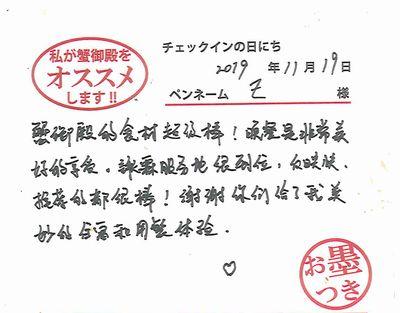 私が蟹御殿を
オススメ
します!!
チェックインの日にち
2019 年 11 月 19 日
ペンネーム Z 様
蟹御殿的食材超级棒！晚餐是非常美
好的享受。评票服务也很到位，反映肤，
推荐的都很棒！谢谢你们给了我美
妙的住宿和用餐体验。
♡
お墨
つき